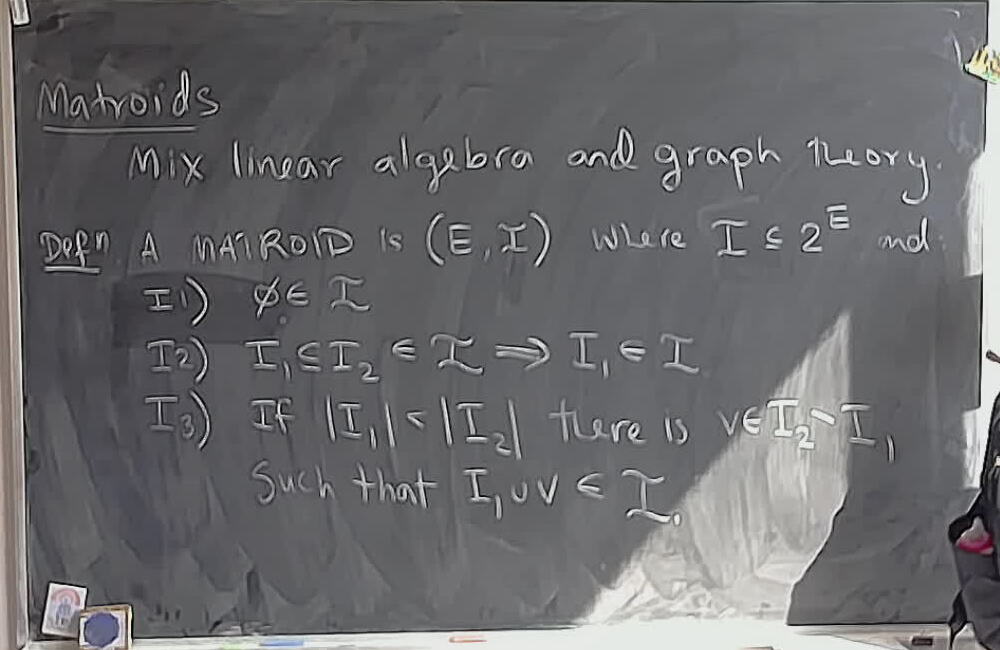 Matroids
Mix linear algebra and graph theory.
Defn. A MATROID is (E, I) where I ⊆ 2^E and:
I1) ∅ ∈ I
I2) I₁ ⊆ I₂ ∈ I ⇒ I₁ ∈ I
I3) If |I₁| < |I₂| there is v ∈ I₂ \ I₁
Such that I₁ ∪ v ∈ I.